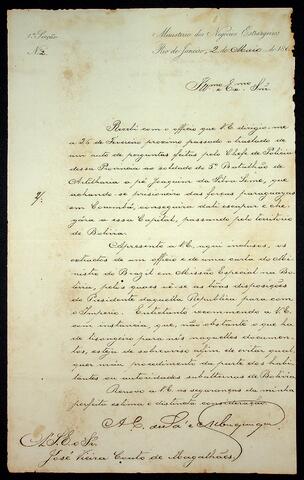 1ª Secção Ministerio dos Negocios Estrangeiros
Nº 2 Rio de Janeiro, 2 de Maio de 186
Illmo e Exmo Snr
Recebi com o officio que V.E. dirigio-me
a 25 de Fevereiro proximo passado o traslado de
um auto de perguntas feitas pelo Chefe de Policia
dessa Provincia ao soldado do 5º Batalhão de
Artilharia a pé Joaquim da Silva Leme, que
achando-se prisioneiro das forças paraguayas
em Corumbá, conseguira dali escapar e che-
gára a essa Capital, passando pelo territorio
de Bolivia.
Apresento a V.E. aqui inclusos, os
extractos de um officio e de uma carta do Mi-
nistro do Brazil em Missão Especial na Bo-
livia, pelos quaes vê-se as bôas disposições
do Presidente daquella Republica para com
o Imperio. Entretanto recommendo a V.E.
com instancia, que, não obstante o que ha
de lisongeiro para nós naquelles documen-
tos, esteja de sobreaviso afim de evitar qual-
quer máo procedimento da parte dos habi-
tantes ou autoridades subalternas de Bolivia.
Renovo a V.E. as seguranças da minha
perfeita estima e distincta consideração.
A. C. de Sá e Albuquerque
A S. E. o Sr.
José Vieira Couto de Magalhães